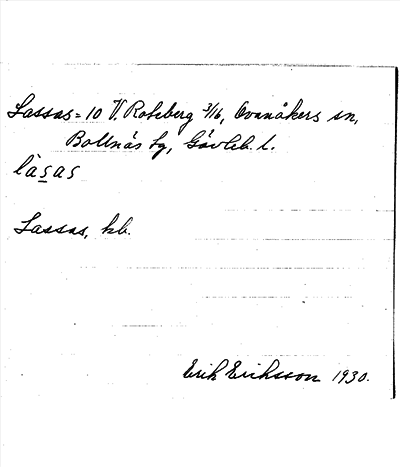 Lassas = 10 V. Roteberg 3/16, Ovanåkers sn,
Bollnäs tg, Gävleb. l.
làsas
Lassas, hb.
Erik Eriksson 1930.